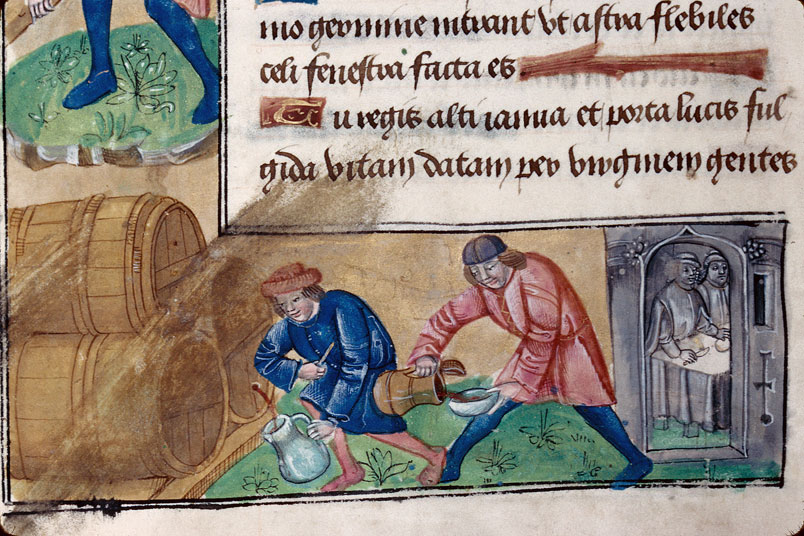 mo geronime intrant ut astra flebiles
celi fenestra facta es
Tu regis alti ianua et porta lucis ful
gida vitam datam per virginem gentes